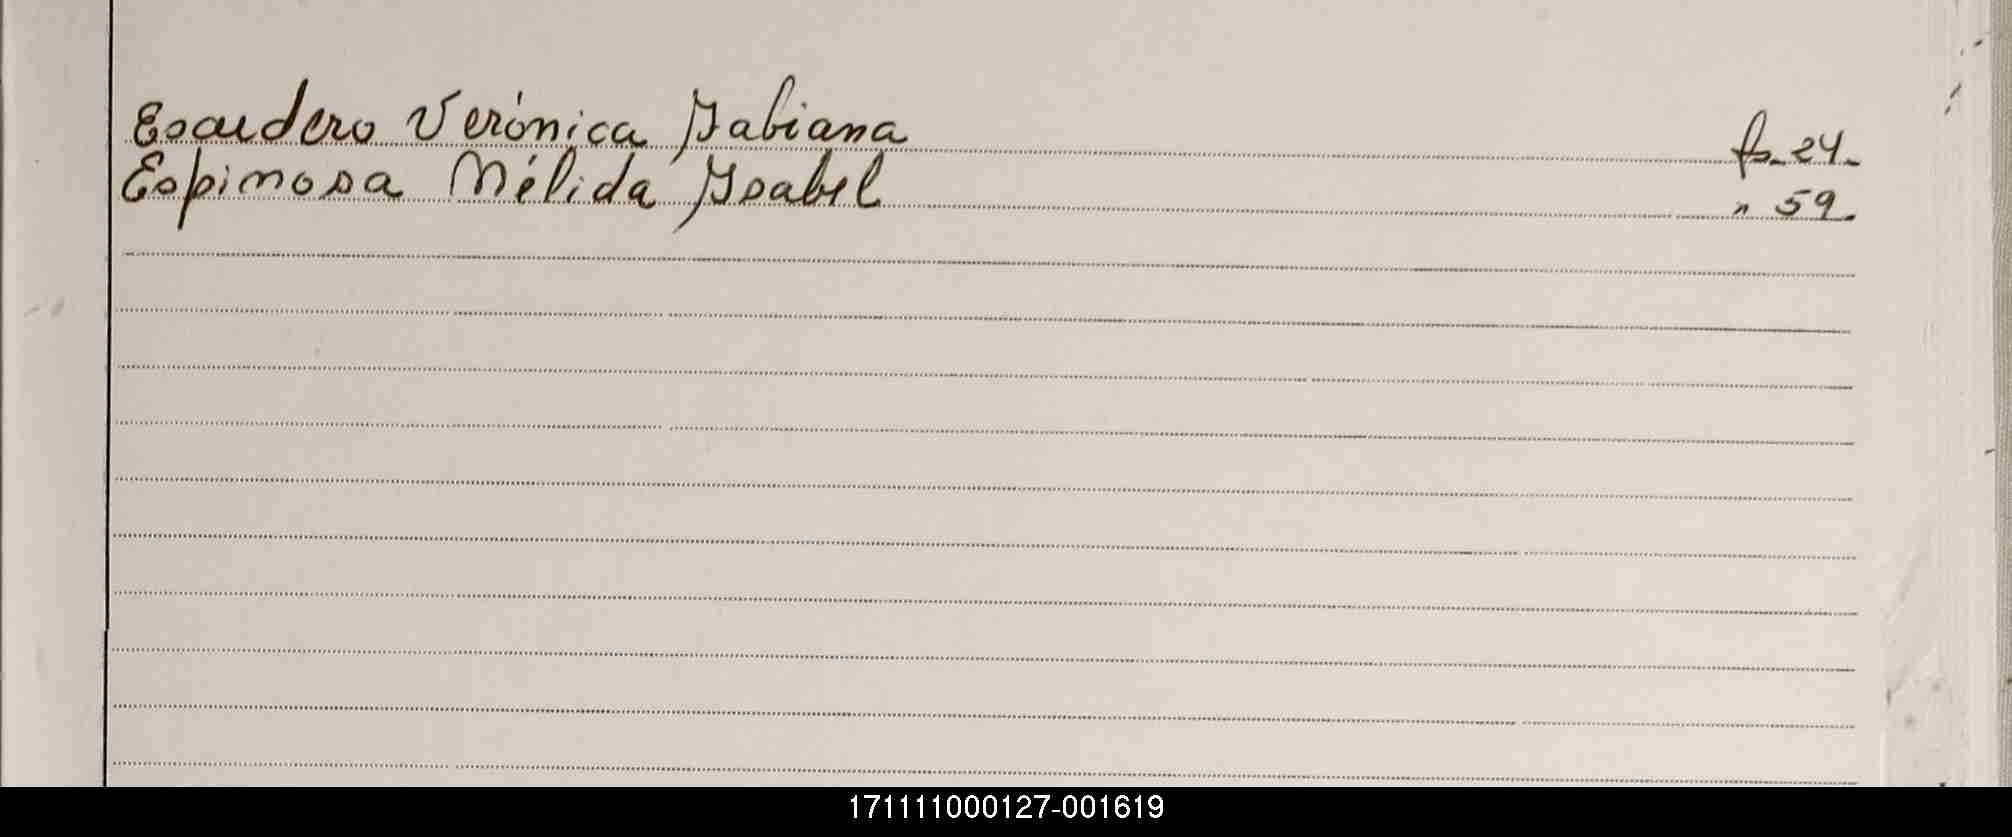 Escudero Verónica Fabiana fs. 24.
Espinosa Nélida Ysabel " 59.
171111000127-001619